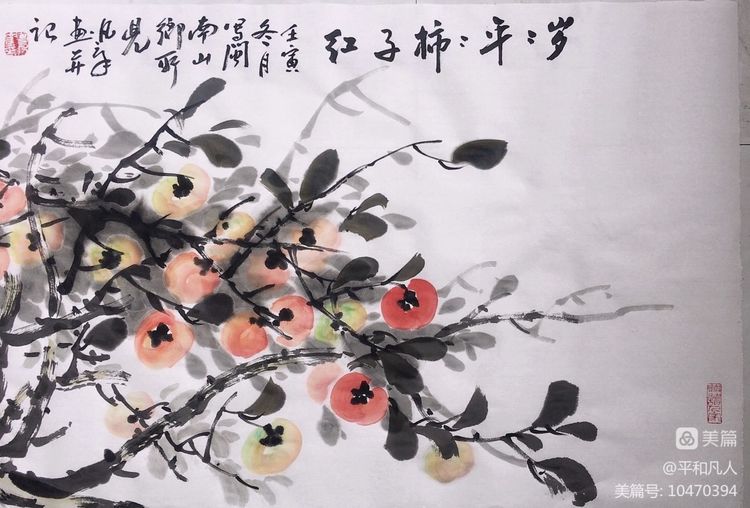 岁〻年〻柿子红
壬寅
冬月
写闽
南山
鄉所
見
画并
记
美篇
@平和凡人
美篇号: 10470394